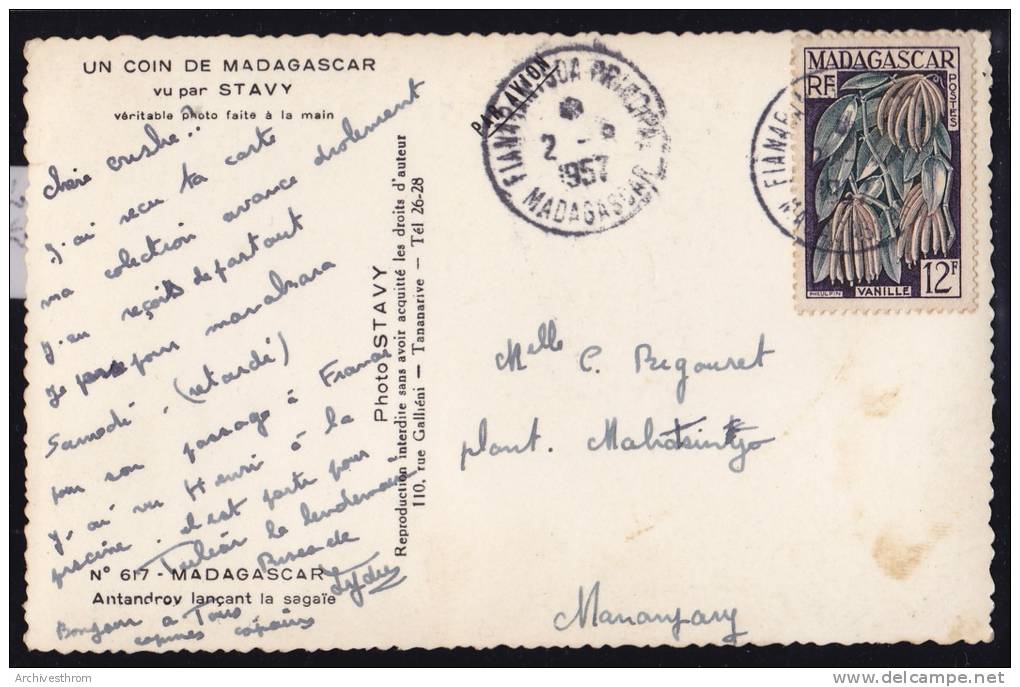 UN COIN DE MADAGASCAR
vu par STAVY
véritable photo faite à la main
chère crushe?..
J'ai recu ta carte
ma colection avance drolement
j'en reçoits de partout
Je pars pour manabsara
Samedi. (retardé)
son passage à Fianar
J'ai vu Henri à la
piscine. il est parti pour
Tuléar le lendemain
Bises de
Lydie
N° 617 - MADAGASCAR
Antandroy lançant la sagaïe
Bonjour a Tous
copines copains
Photo STAVY
Reproduction interdite sans avoir acquitté les droits d'auteur
110, rue Galliéni — Tananarive — Tél 26-28
PAR AVION
FIANARANTSOA PRINCIPAL
2 -
1957
MADAGASCAR
MADAGASCAR
RF
POSTES
PHEULPIN VANILLE 12F
Melle C. Begouret
plant. Mahatsintjo
Mananjary
Archivesthrom
www.delcampe.net